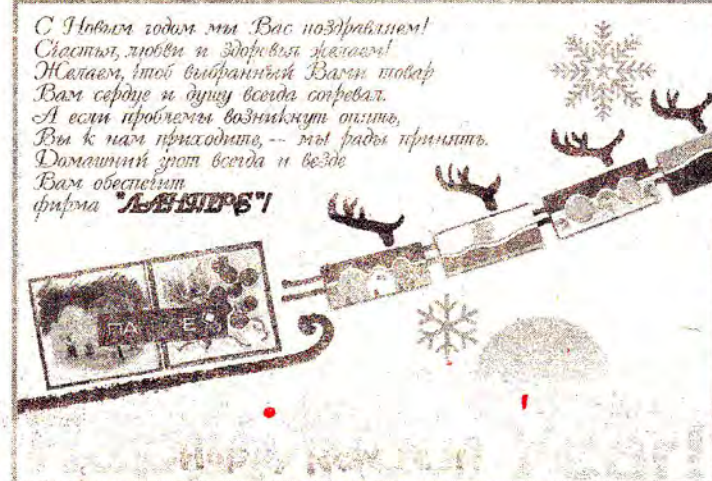 С Новым годом мы Вас поздравляем!
Счастья, любви и здоровья желаем!
Желаем, чтоб выбранный Вами товар
Вам сердце и душу всегда согревал.
А если проблемы возникнут опять,
Вы к нам приходите, -- мы рады принять.
Домашний уют всегда и везде
Вам обеспечит
фирма
Happy New Year!